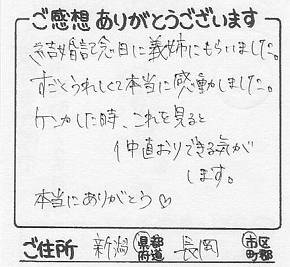 ご感想 ありがとうございます
結婚記念日に義姉にもらいました。
すごくうれしくて本当に感動しました。
ケンカした時、これを見ると
仲直おりできる気が
します。
本当にありがとう♡
ご住所 新潟 都道府県 長岡 市区町郡